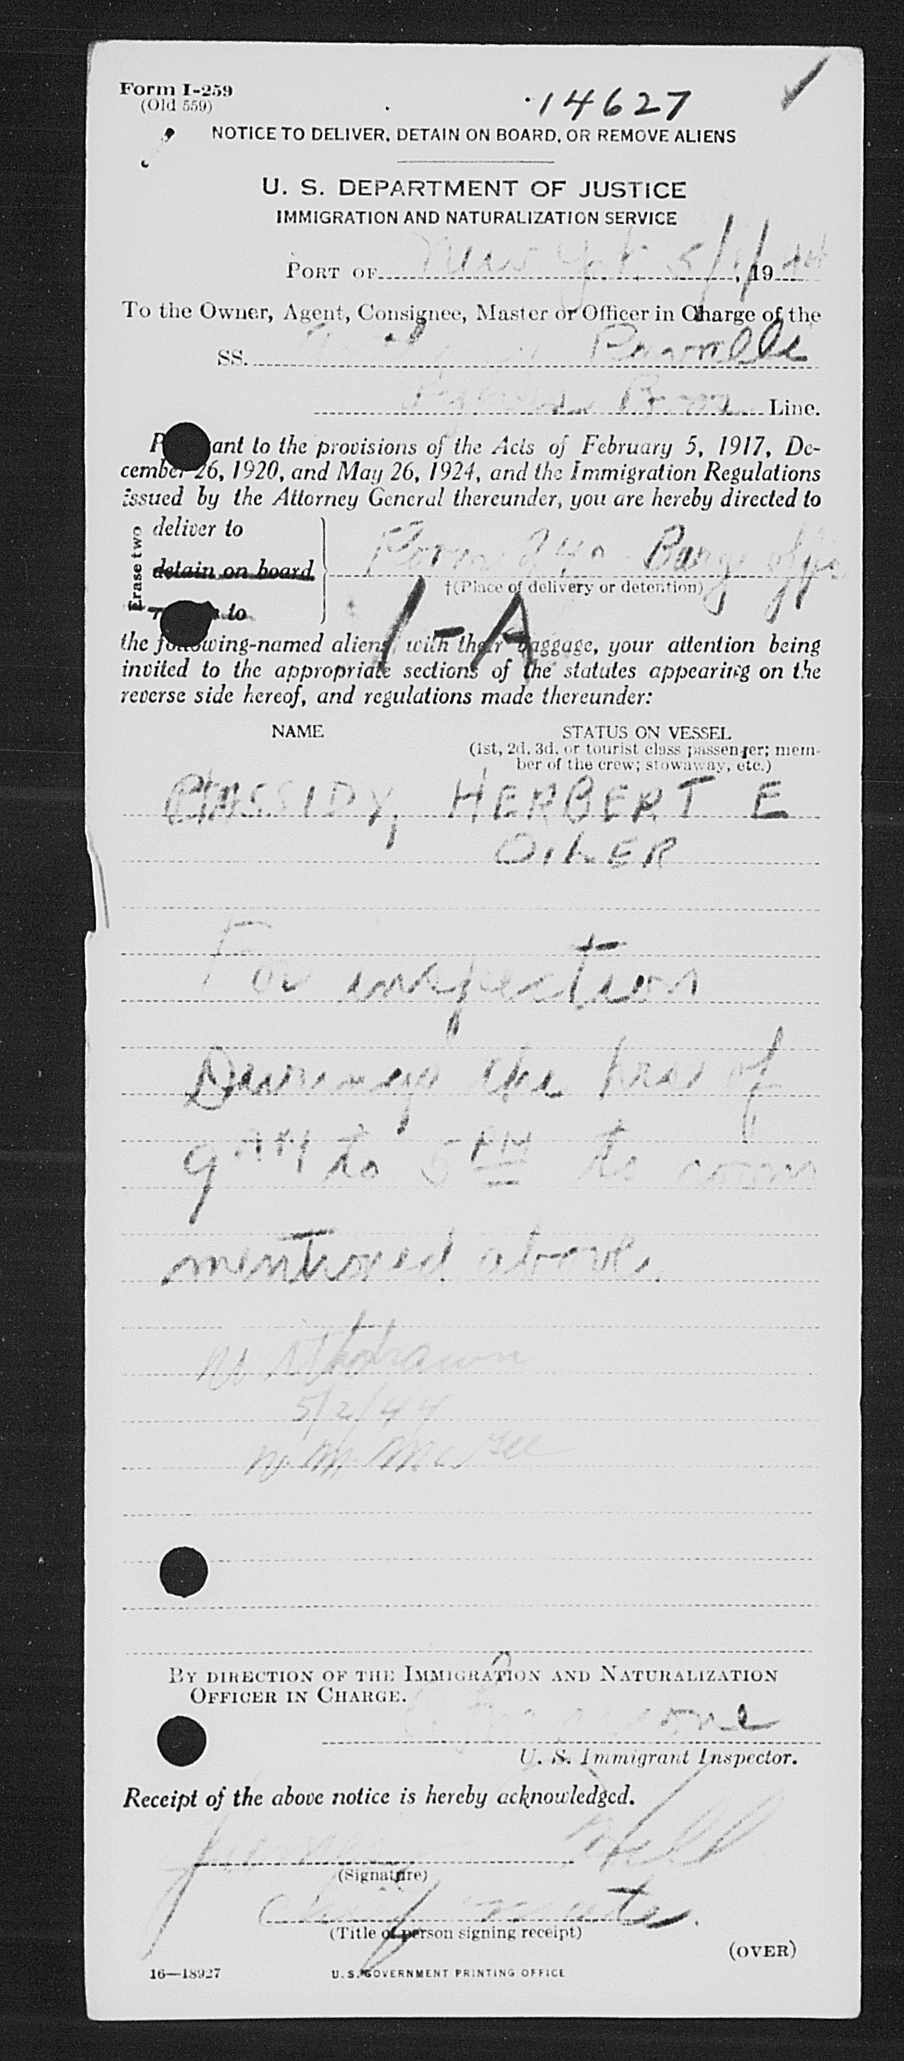 Form I-259
(Old 559)
14627
NOTICE TO DELIVER, DETAIN ON BOARD, OR REMOVE ALIENS
U. S. DEPARTMENT OF JUSTICE
IMMIGRATION AND NATURALIZATION SERVICE
PORT OF New York 5/1/, 1944
To the Owner, Agent, Consignee, Master or Officer in Charge of the
SS.
Line.
P ant to the provisions of the Acts of February 5, 1917, De-
cember 26, 1920, and May 26, 1924, and the Immigration Regulations
issued by the Attorney General thereunder, you are hereby directed to
Erase two
deliver to
detain on board
to
Room 240 Barge office
†(Place of delivery or detention)
1-A
the following-named aliens, with their baggage, your attention being
invited to the appropriate sections of the statutes appearing on the
reverse side hereof, and regulations made thereunder:
NAME STATUS ON VESSEL
(1st, 2d, 3d, or tourist class passenger; mem-
ber of the crew; stowaway, etc.)
CASSIDY, HERBERT E
OILER
For inspection
During the hrs of
9 AM to 5 PM to room
mentioned above.
Withdrawn
5/2/44
W. M. McGee
BY DIRECTION OF THE IMMIGRATION AND NATURALIZATION
OFFICER IN CHARGE.
U. S. Immigrant Inspector.
Receipt of the above notice is hereby acknowledged.
(Signature)
Chief mate.
(Title of person signing receipt)
(OVER)
16—18927 U. S. GOVERNMENT PRINTING OFFICE